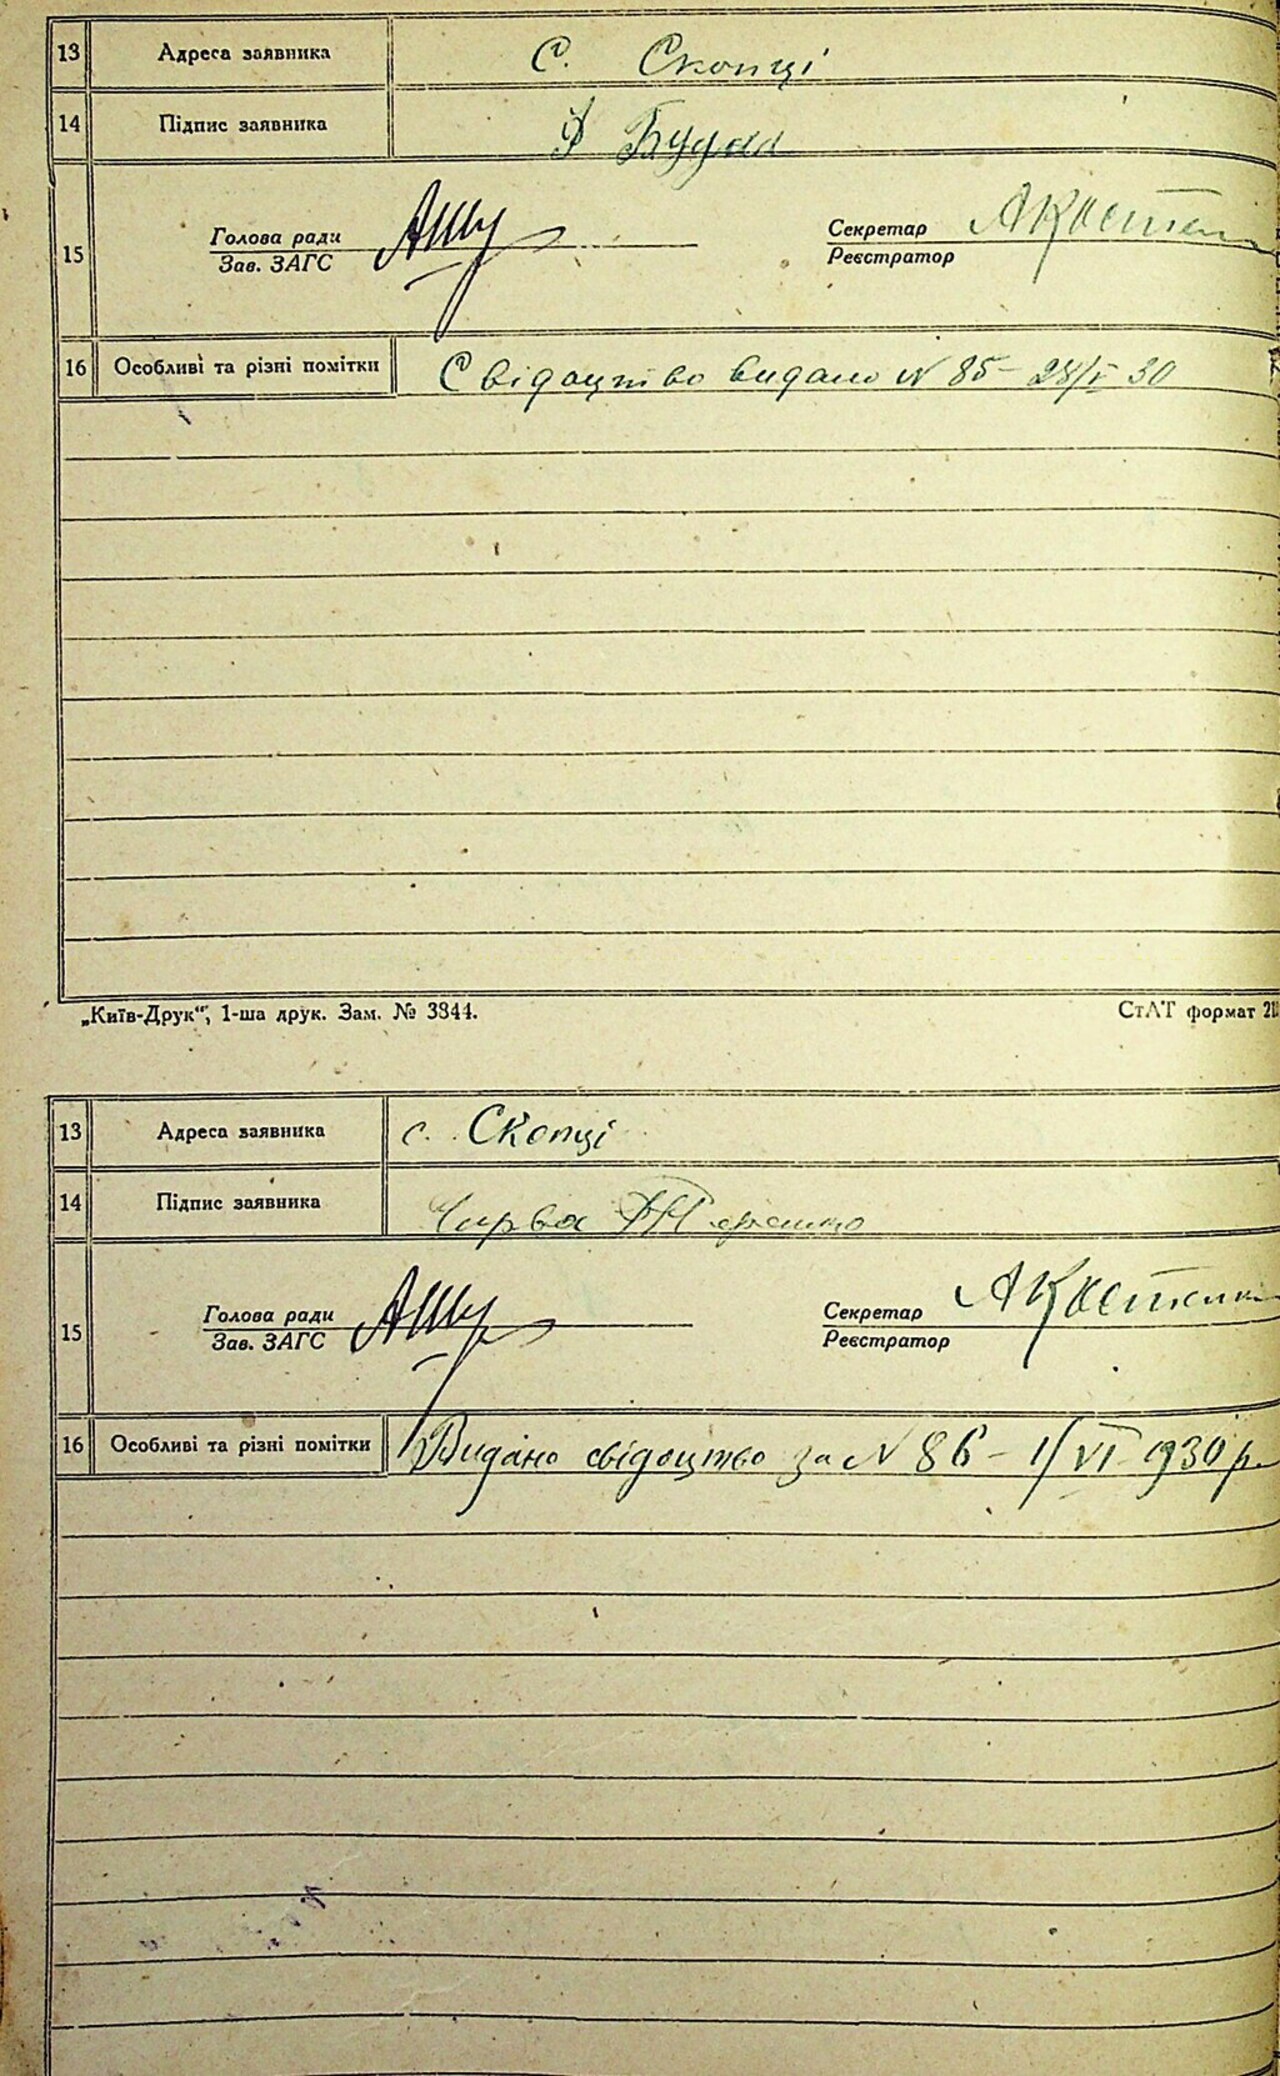 13 Адреса заявника с. Скопці
14 Підпис заявника
15 Голова ради Секретар А Костен
Зав. ЗАГС Реєстратор
16 Особливі та різні помітки Свідоцтво видано N 85 – 28/V 30
„Київ-Друк“, 1-ша друк. Зам. № 3344.
СтАТ формат
13 Адреса заявника с. Скопці
14 Підпис заявника Чирва
15 Голова ради Секретар А Костенк
Зав. ЗАГС Реєстратор
16 Особливі та різні помітки Видано свідоцтво за N 86 – 1/VI 1930 р.